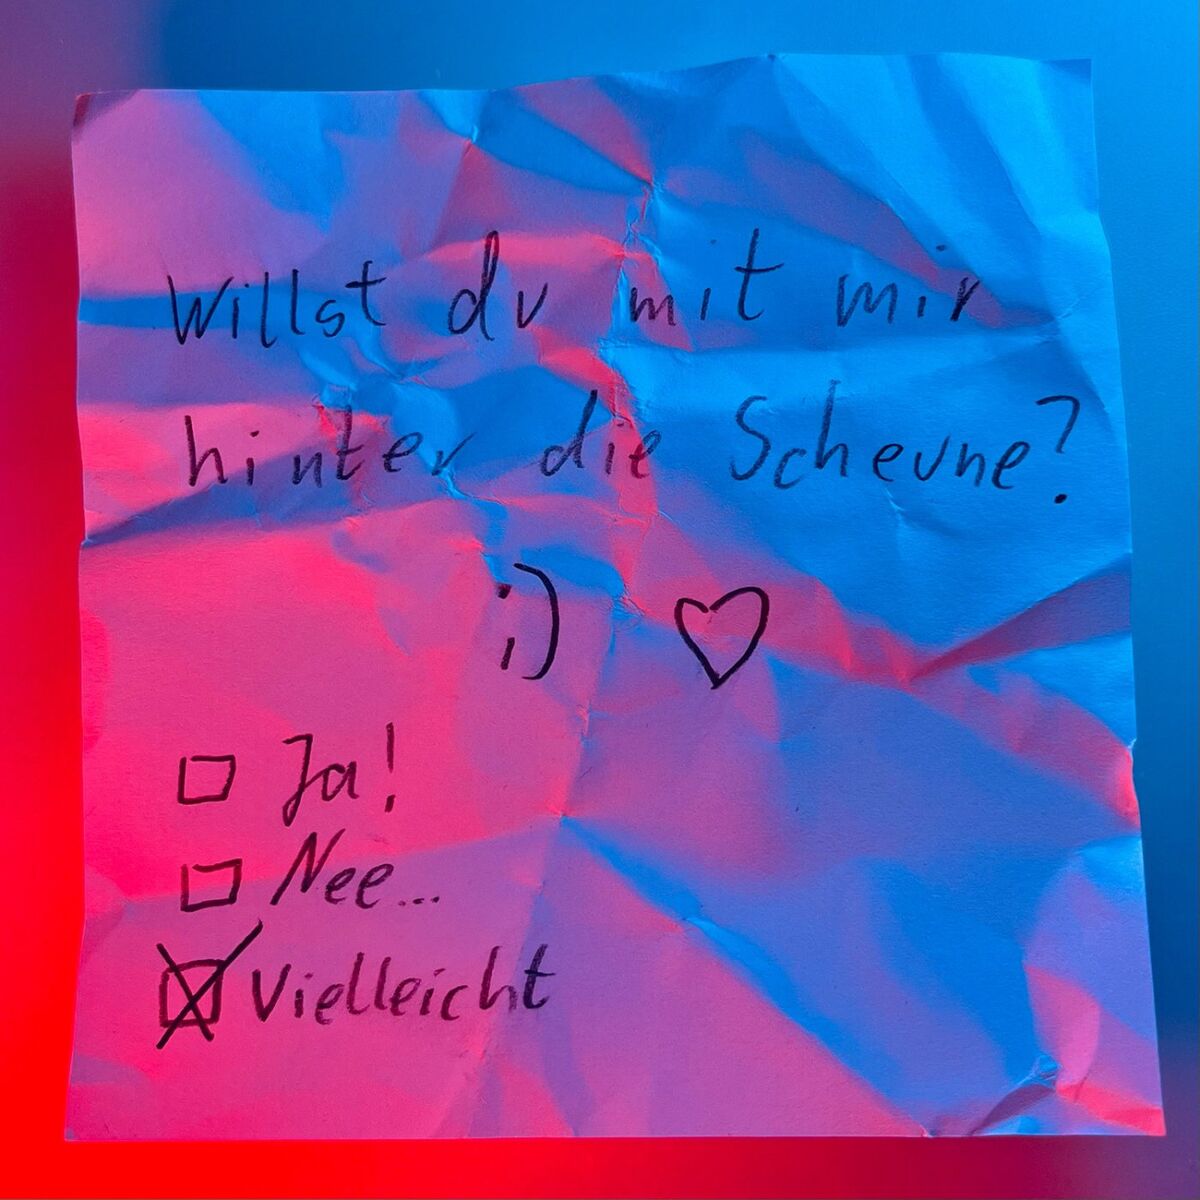 Willst du mit mir
hinter die Scheune?
;) ♡
☐ Ja!
☐ Nee...
☒ Vielleicht